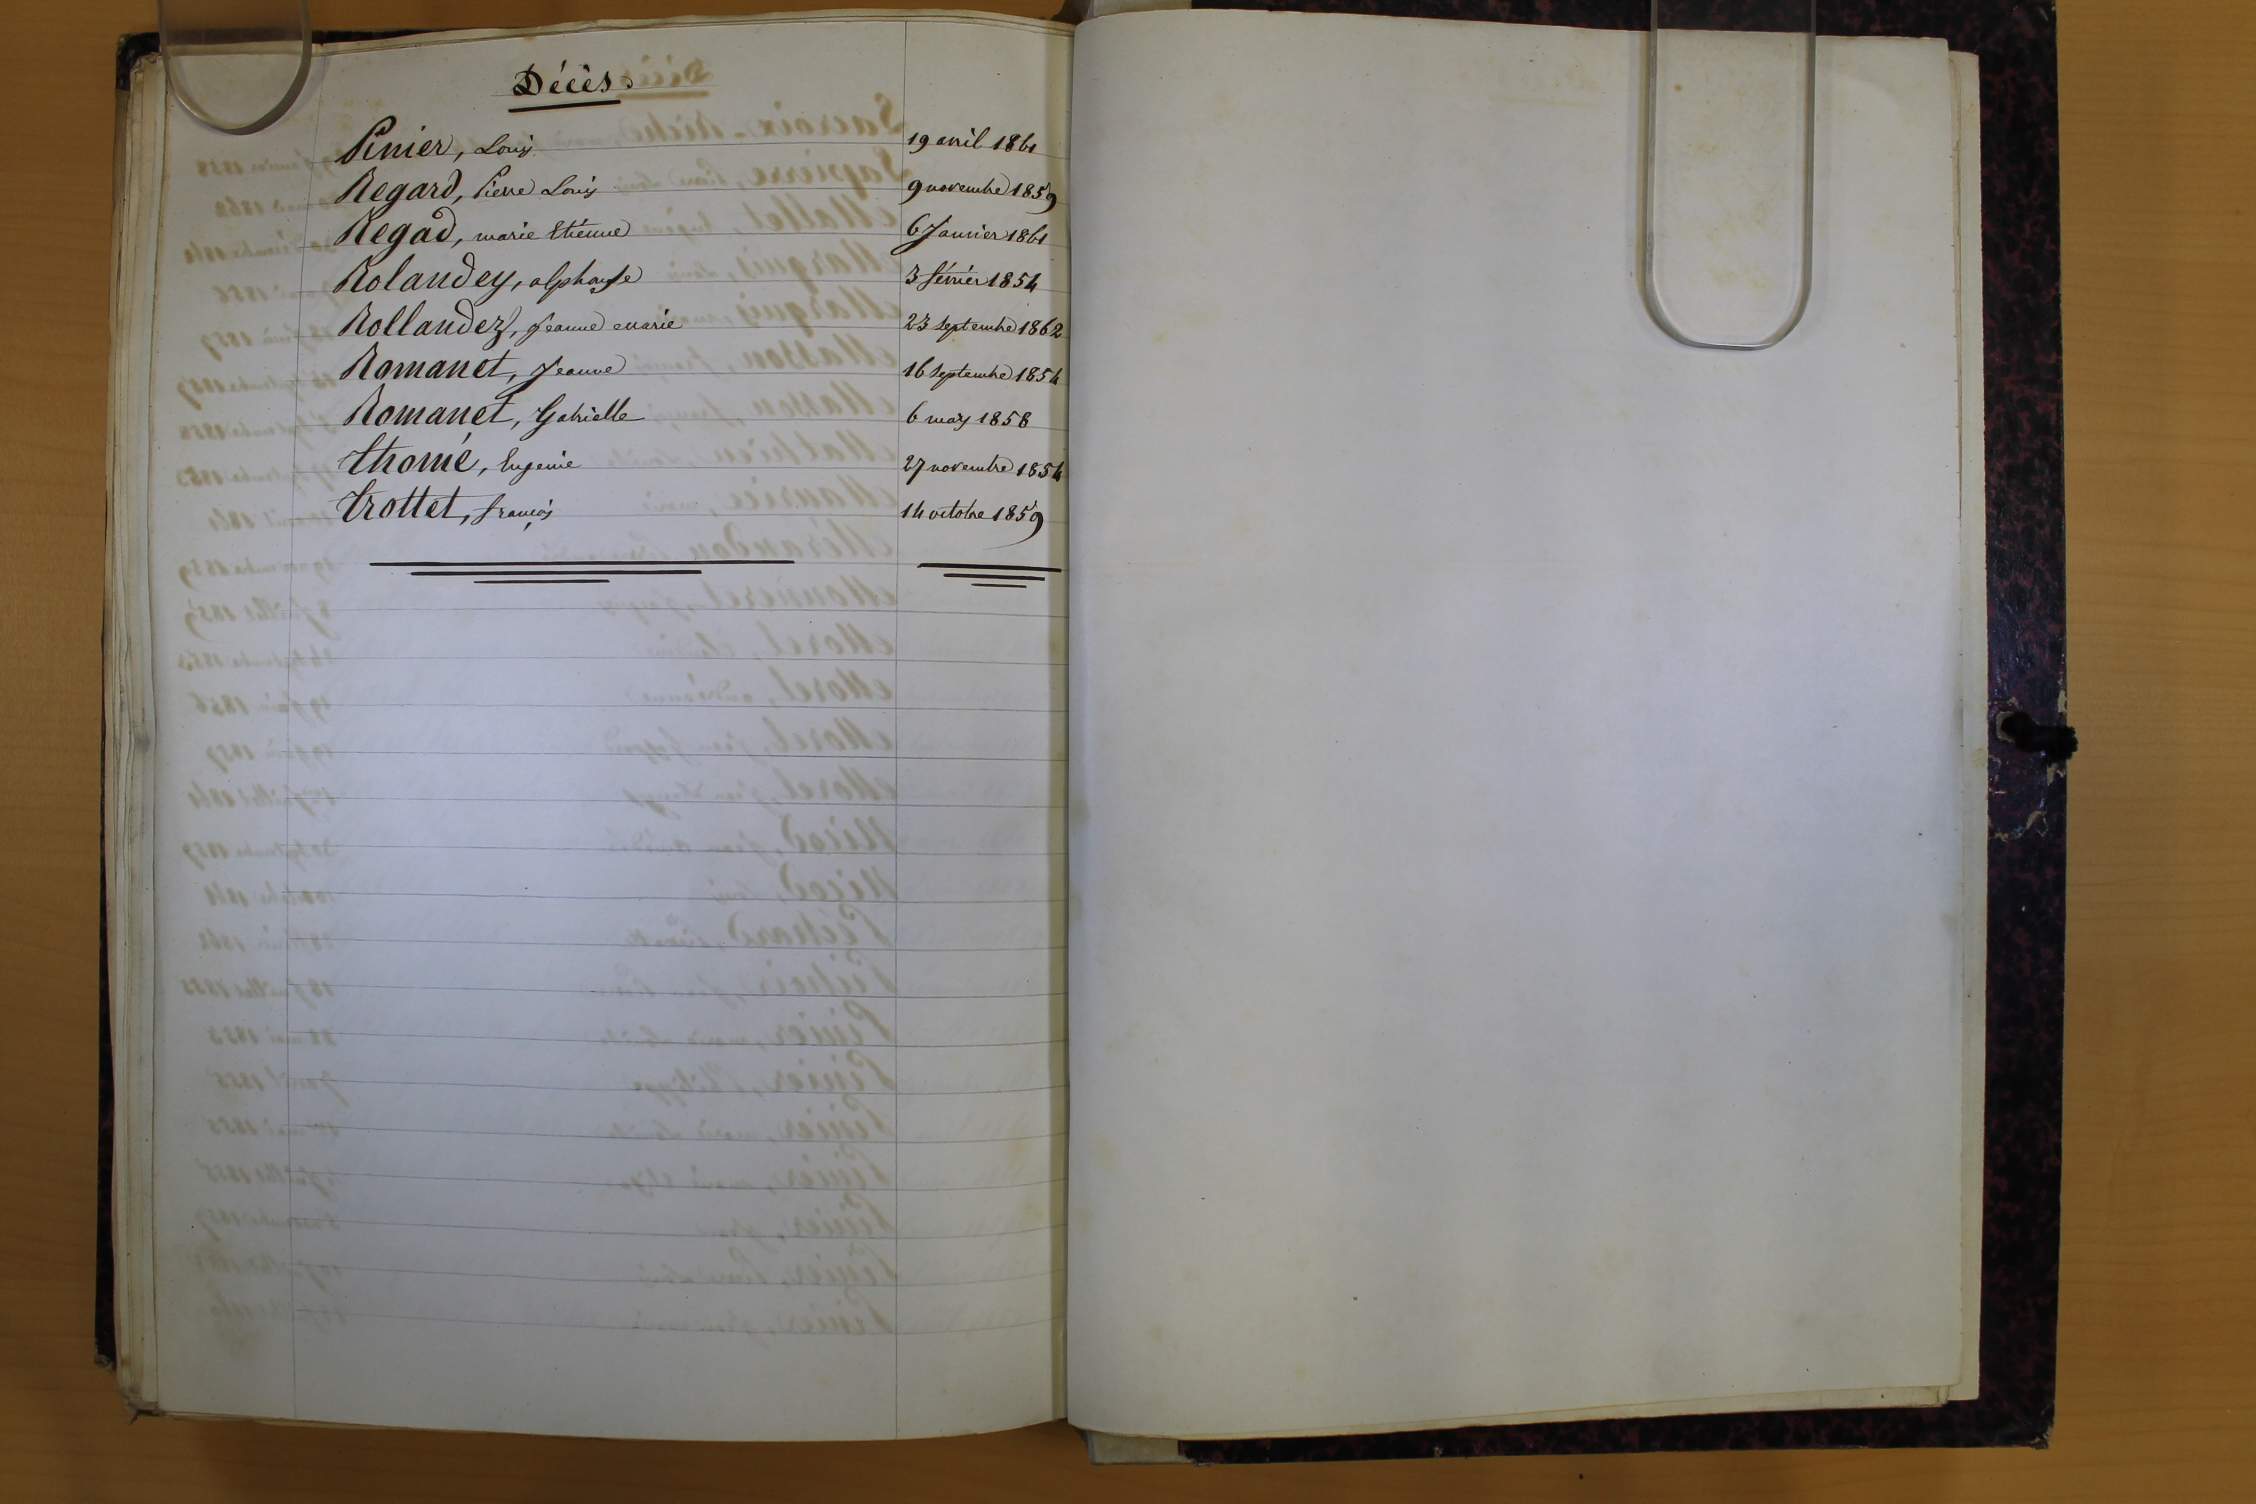 Décès.
Pinier, Louis 19 avril 1861
Regard, Pierre Louis 9 novembre 1859
Regad, marie Etienne 6 Janvier 1861
Rolandey, alphonse 3 février 1854
Rollandez, Jeanne marie 23 septembre 1862
Romanet, Jeanne 16 septembre 1854
Romanet, Gabrielle 6 mars 1858
Thomé, Eugenie 27 novembre 1854
Trottet, françois 14 octobre 1859